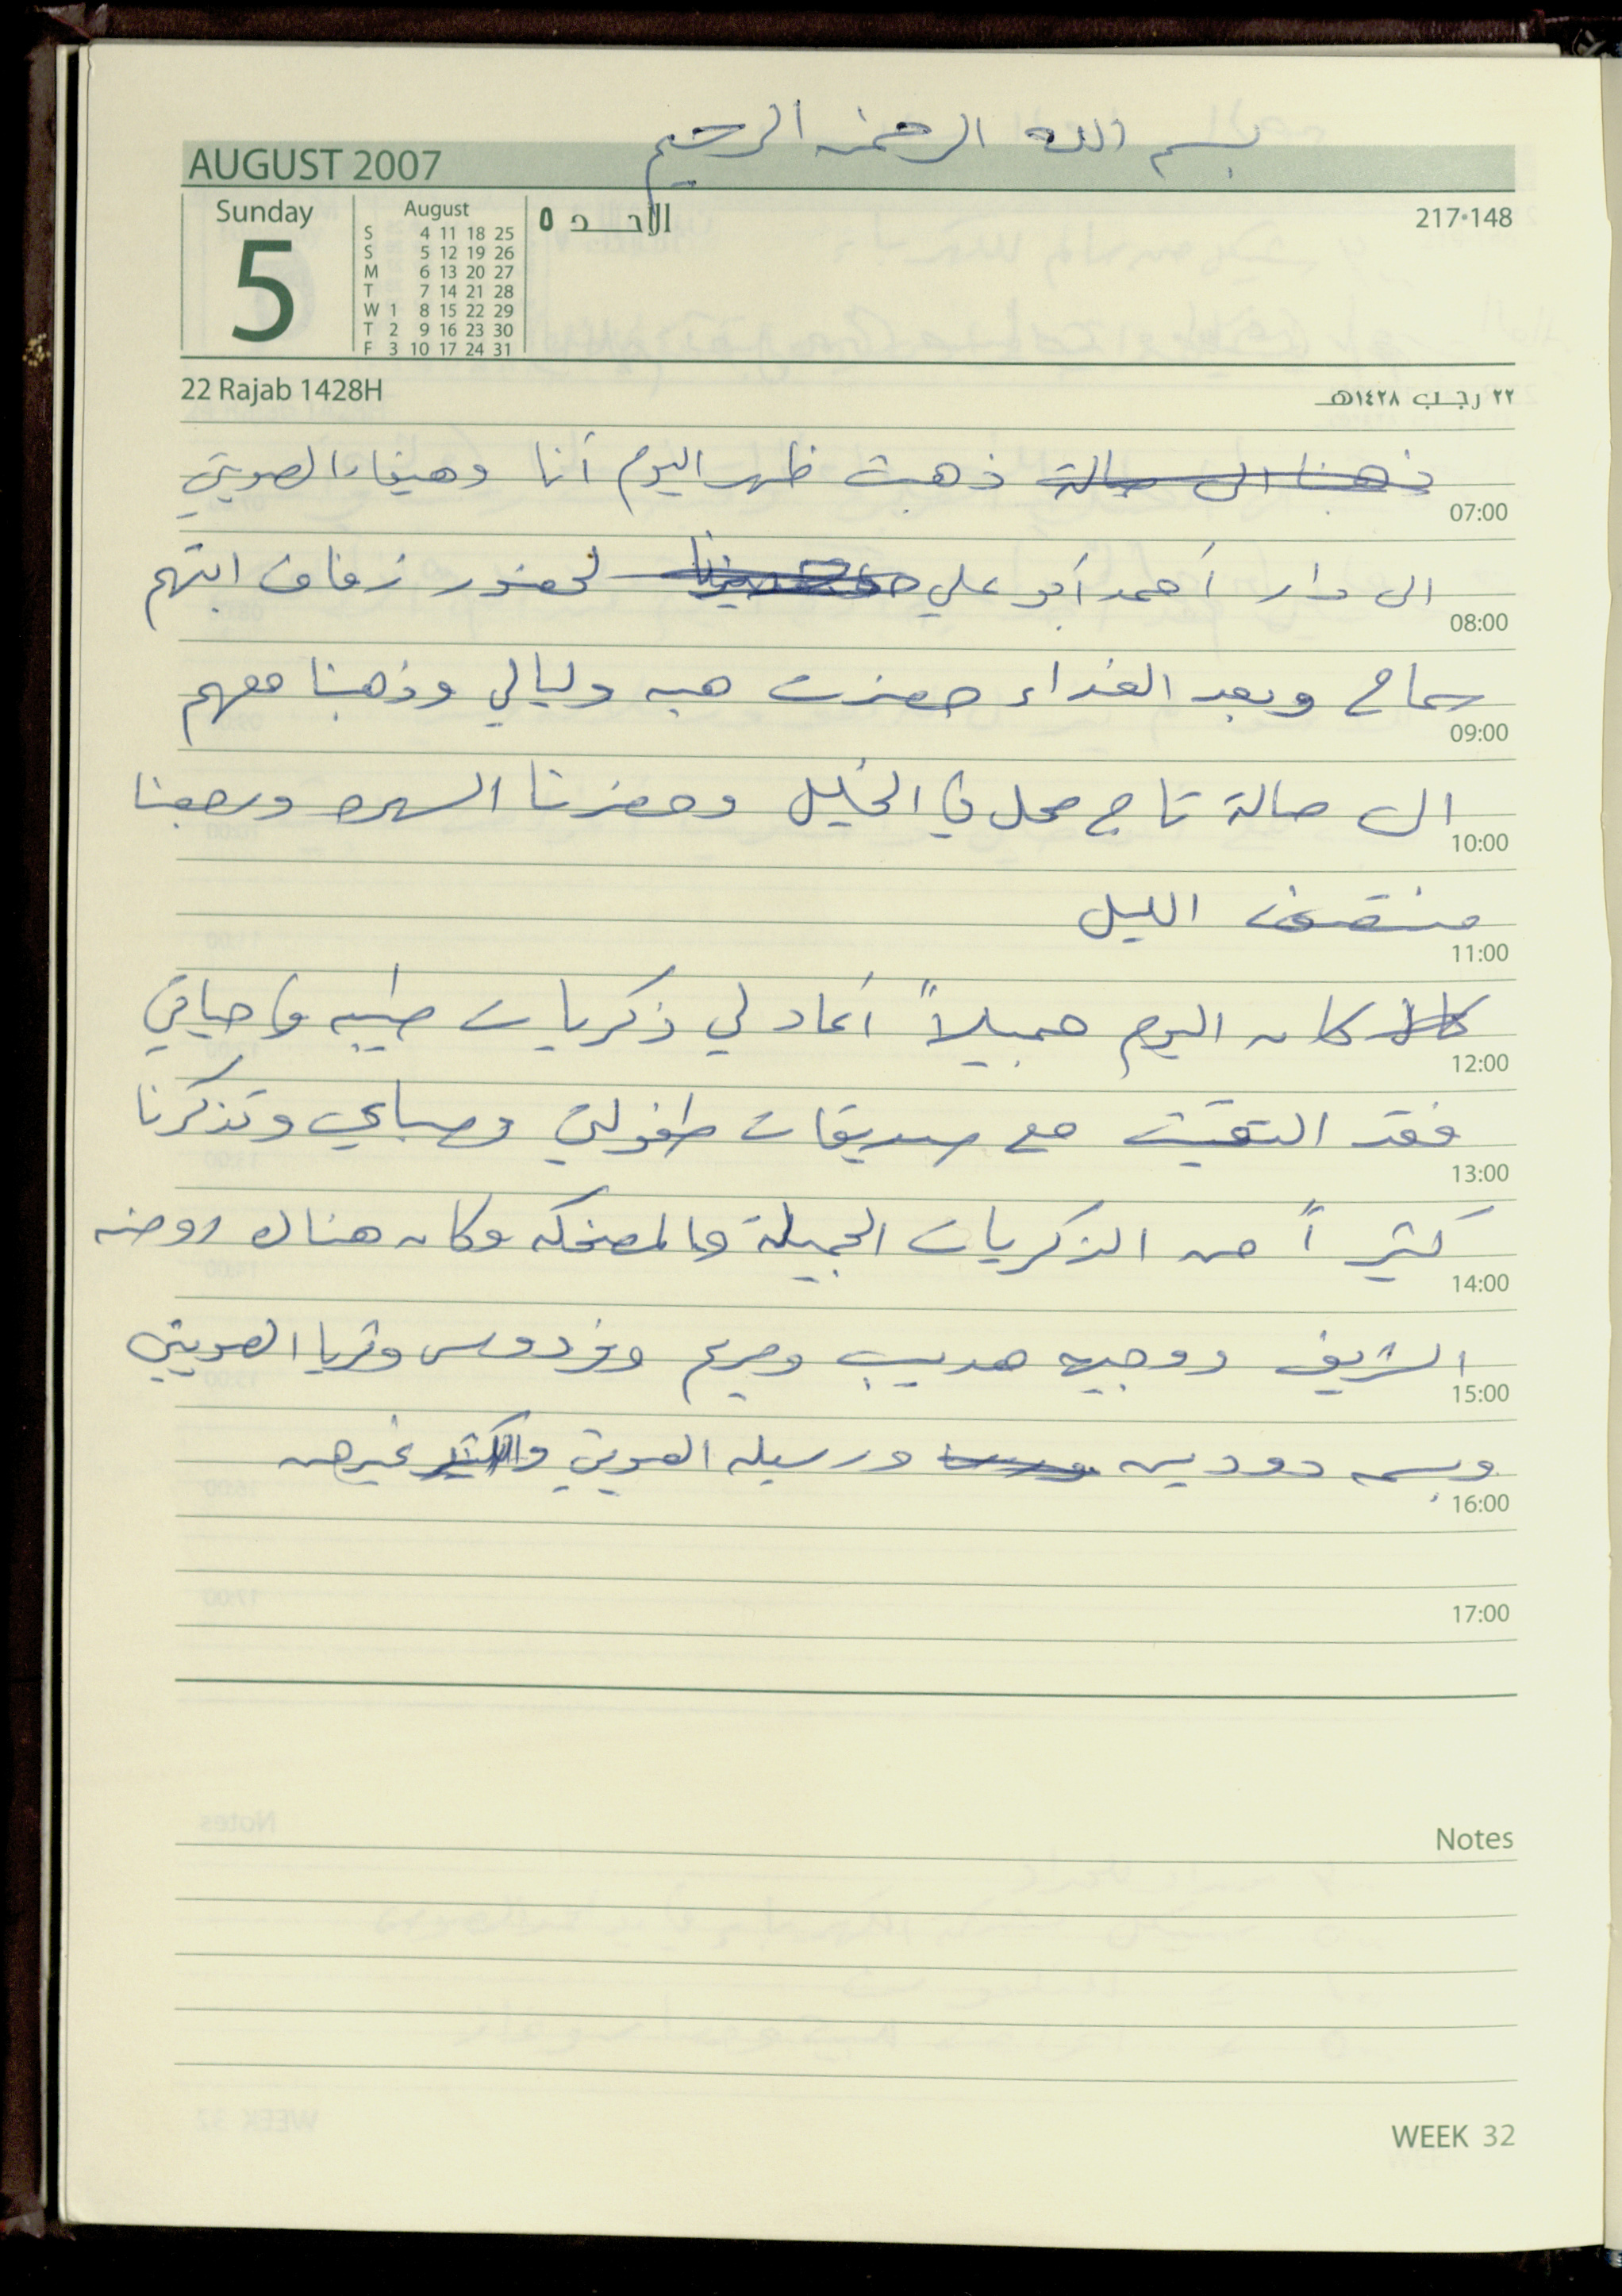 بسم الله الرحمن الرحيم
AUGUST 2007
Sunday
5
August
S 4 11 18 25
S 5 12 19 26
M 6 13 20 27
T 7 14 21 28
W 1 8 15 22 29
T 2 9 16 23 30
F 3 10 17 24 31
الأحد ٥
217·148
22 Rajab 1428H
٢٢ رجب ١٤٢٨هـ
ذهبنا الى صالة ذهبت ظهر اليوم أنا وهيفاء الصويتي
07:00
الى دار أحمد أبو علي لحضور زفاف ابنتهم
08:00
سماح وبعد الغداء حضرت هبه وليالي وذهبنا معهم
09:00
الى صالة تاج محل في الخليل وحضرنا السهره ورجعنا
10:00
منتصف الليل
11:00
كان اليوم جميلاً أعاد لي ذكريات طيبه في حياتي
12:00
فقد التقيت مع صديقات طفولتي وصباي وتذكرنا
13:00
كثيراً من الذكريات الجميلة والمضحكه وكان هناك روضه
14:00
الشريف ووجيه هديب ومريم وفردوس وثريا الصويتي
15:00
وبسمه دودين ورسيله الصويتي والكثير غيرهن
16:00
17:00
Notes
WEEK 32